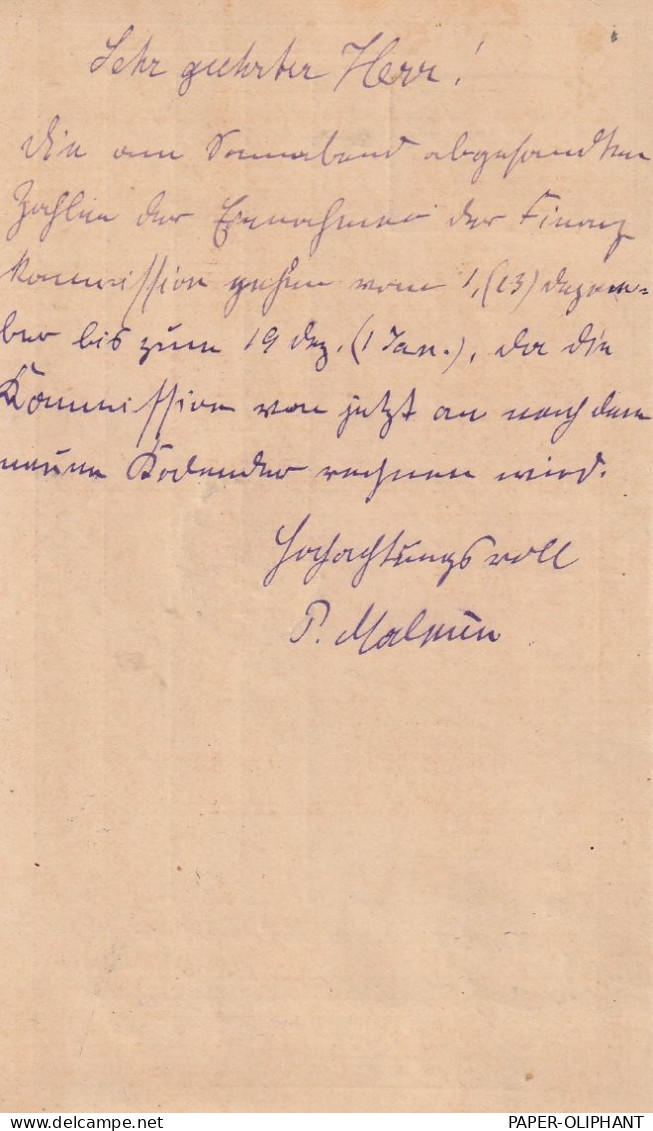 Sehr geehrter Herr!
die am Sonnabend abgesandten
Zahlen der Einnahmen der Finanz
kommission gehen vom 1, (13) Dezem=
ber bis zum 19 Dez. (1 Jan.), da die
Kommission von jetzt an nach dem
neuen Kalender rechnen wird.
Hochachtungsvoll
P.
www.delcampe.net
PAPER-OLIPHANT